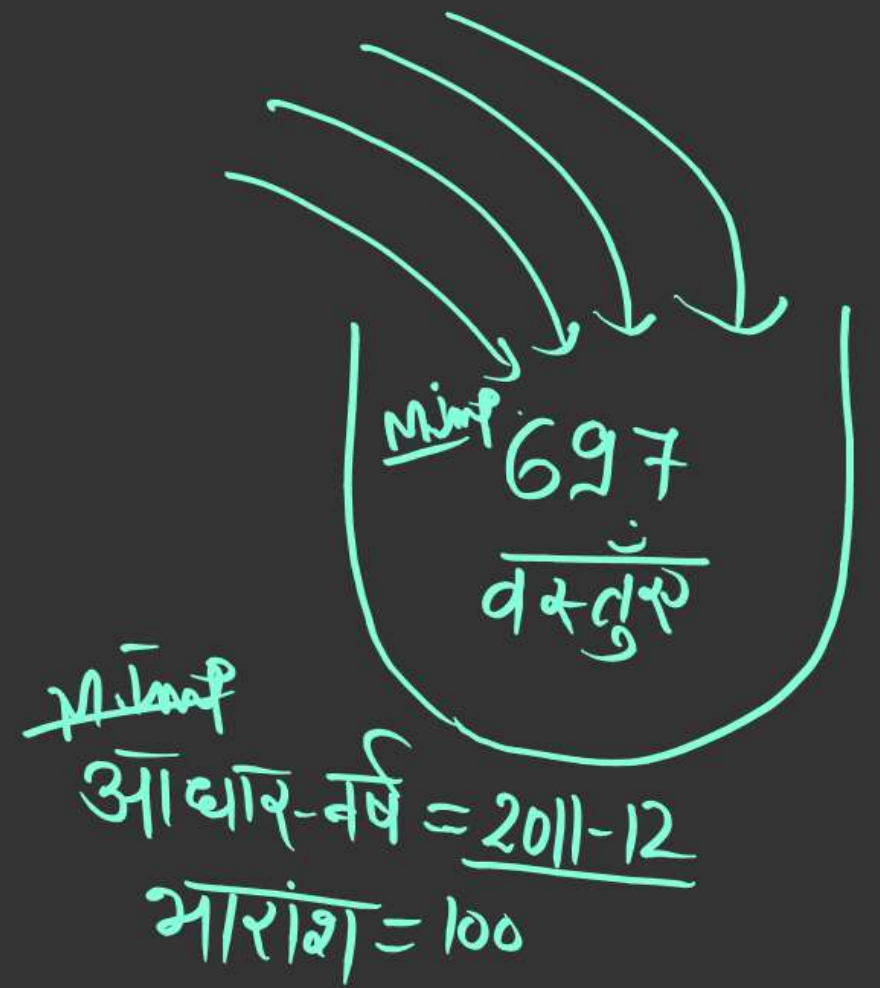 M.imp 697
वस्तुएं
M.Imp
आधार-वर्ष = 2011-12
भारांश = 100